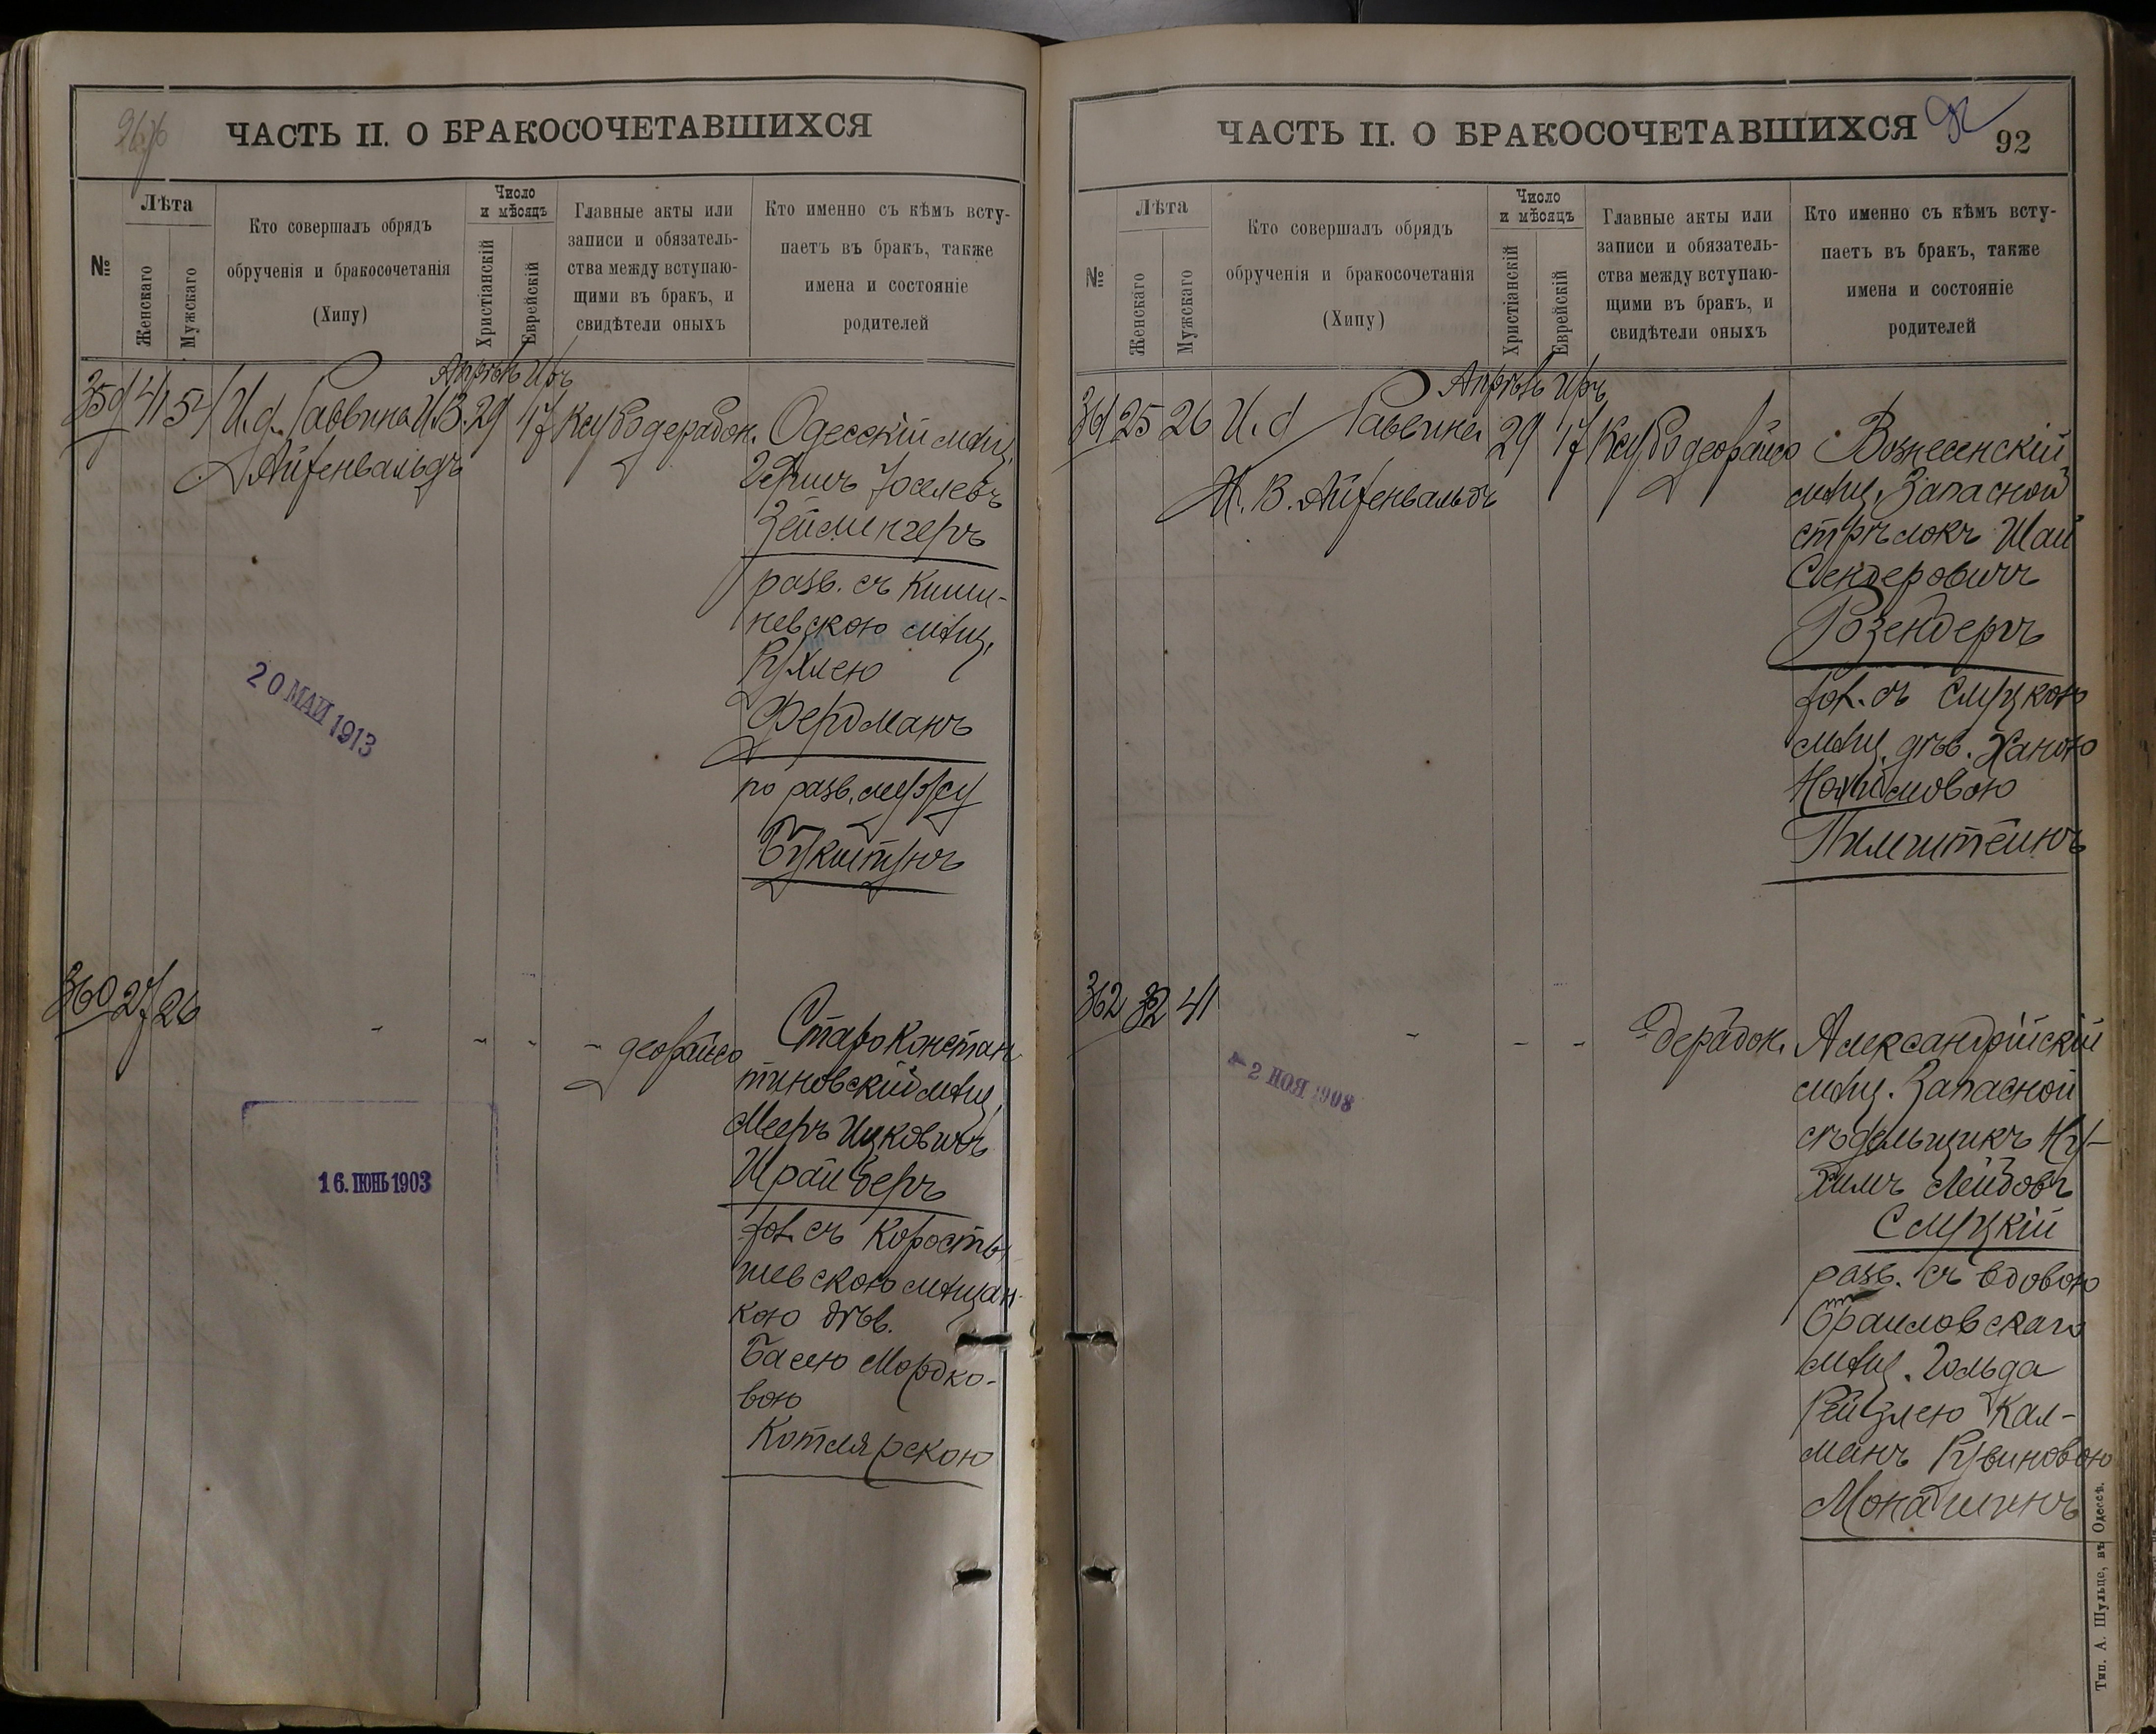 ЧАСТЬ II. О БРАКОСОЧЕТАВШИХСЯ
№
Лѣта
Женскаго
Мужскаго
Кто совершалъ обрядъ
обрученія и бракосочетанія
(Хипу)
Число
и мѣсяцъ
Христіанскій
Еврейскій
Главные акты или
записи и обязатель-
ства между вступаю-
щими въ бракъ, и
свидѣтели оныхъ
Кто именно съ кѣмъ всту-
паетъ въ бракъ, также
имена и состояніе
родителей
Апрѣль Иръ
359 41 54 И. д. Раввина И. В. 29 17 Ксубо дерабон. Одесскій мѣщ.
Айзенвальдъ
Гершъ Іоселевъ
Зейлингеръ
разв. съ Киши-
невскою мѣщ.
Рухлею
Фердманъ
по разв. мужу
Букштунъ
20 МАЙ 1913
360 27 26 - - - - деорайсо Староконстан
тиновскій мѣщ.
Мееръ Ицковичъ
Шрайберъ
хол. съ Коросты
шевскою мѣщан-
кою дѣв.
Басею Мордко-
вою
Котлярскою
16. ІЮНЬ 1903
ЧАСТЬ II. О БРАКОСОЧЕТАВШИХСЯ
92
92
№
Лѣта
Женскаго
Мужскаго
Кто совершалъ обрядъ
обрученія и бракосочетанія
(Хипу)
Число
и мѣсяцъ
Христіанскій
Еврейскій
Главные акты или
записи и обязатель-
ства между вступаю-
щими въ бракъ, и
свидѣтели оныхъ
Кто именно съ кѣмъ всту-
паетъ въ бракъ, также
имена и состояніе
родителей
Апрѣль Иръ
361 25 26 И. д. Раввина 29 17 Ксубо деорайсо Вознесенскій
И. В. Айзенвальдъ
мѣщ. Запасной
стрѣлокъ Шай
Сендеровичъ
Розендеръ
хол. съ Слуцкою
мѣщ. дѣв. Ханою
Нохимовою
362 32 41 - - - дерабон. Александрійскій
мѣщ. Запасной
сѣдельщикъ Ну-
химъ Лейбовъ
Слуцкій
разв. съ вдовою
Браиловскаго
мѣщ. Гольда
Рейзлею Кал-
манъ Рувиновою
2 НОЯ 1908
Тип. А. Шульце, въ Одессѣ.